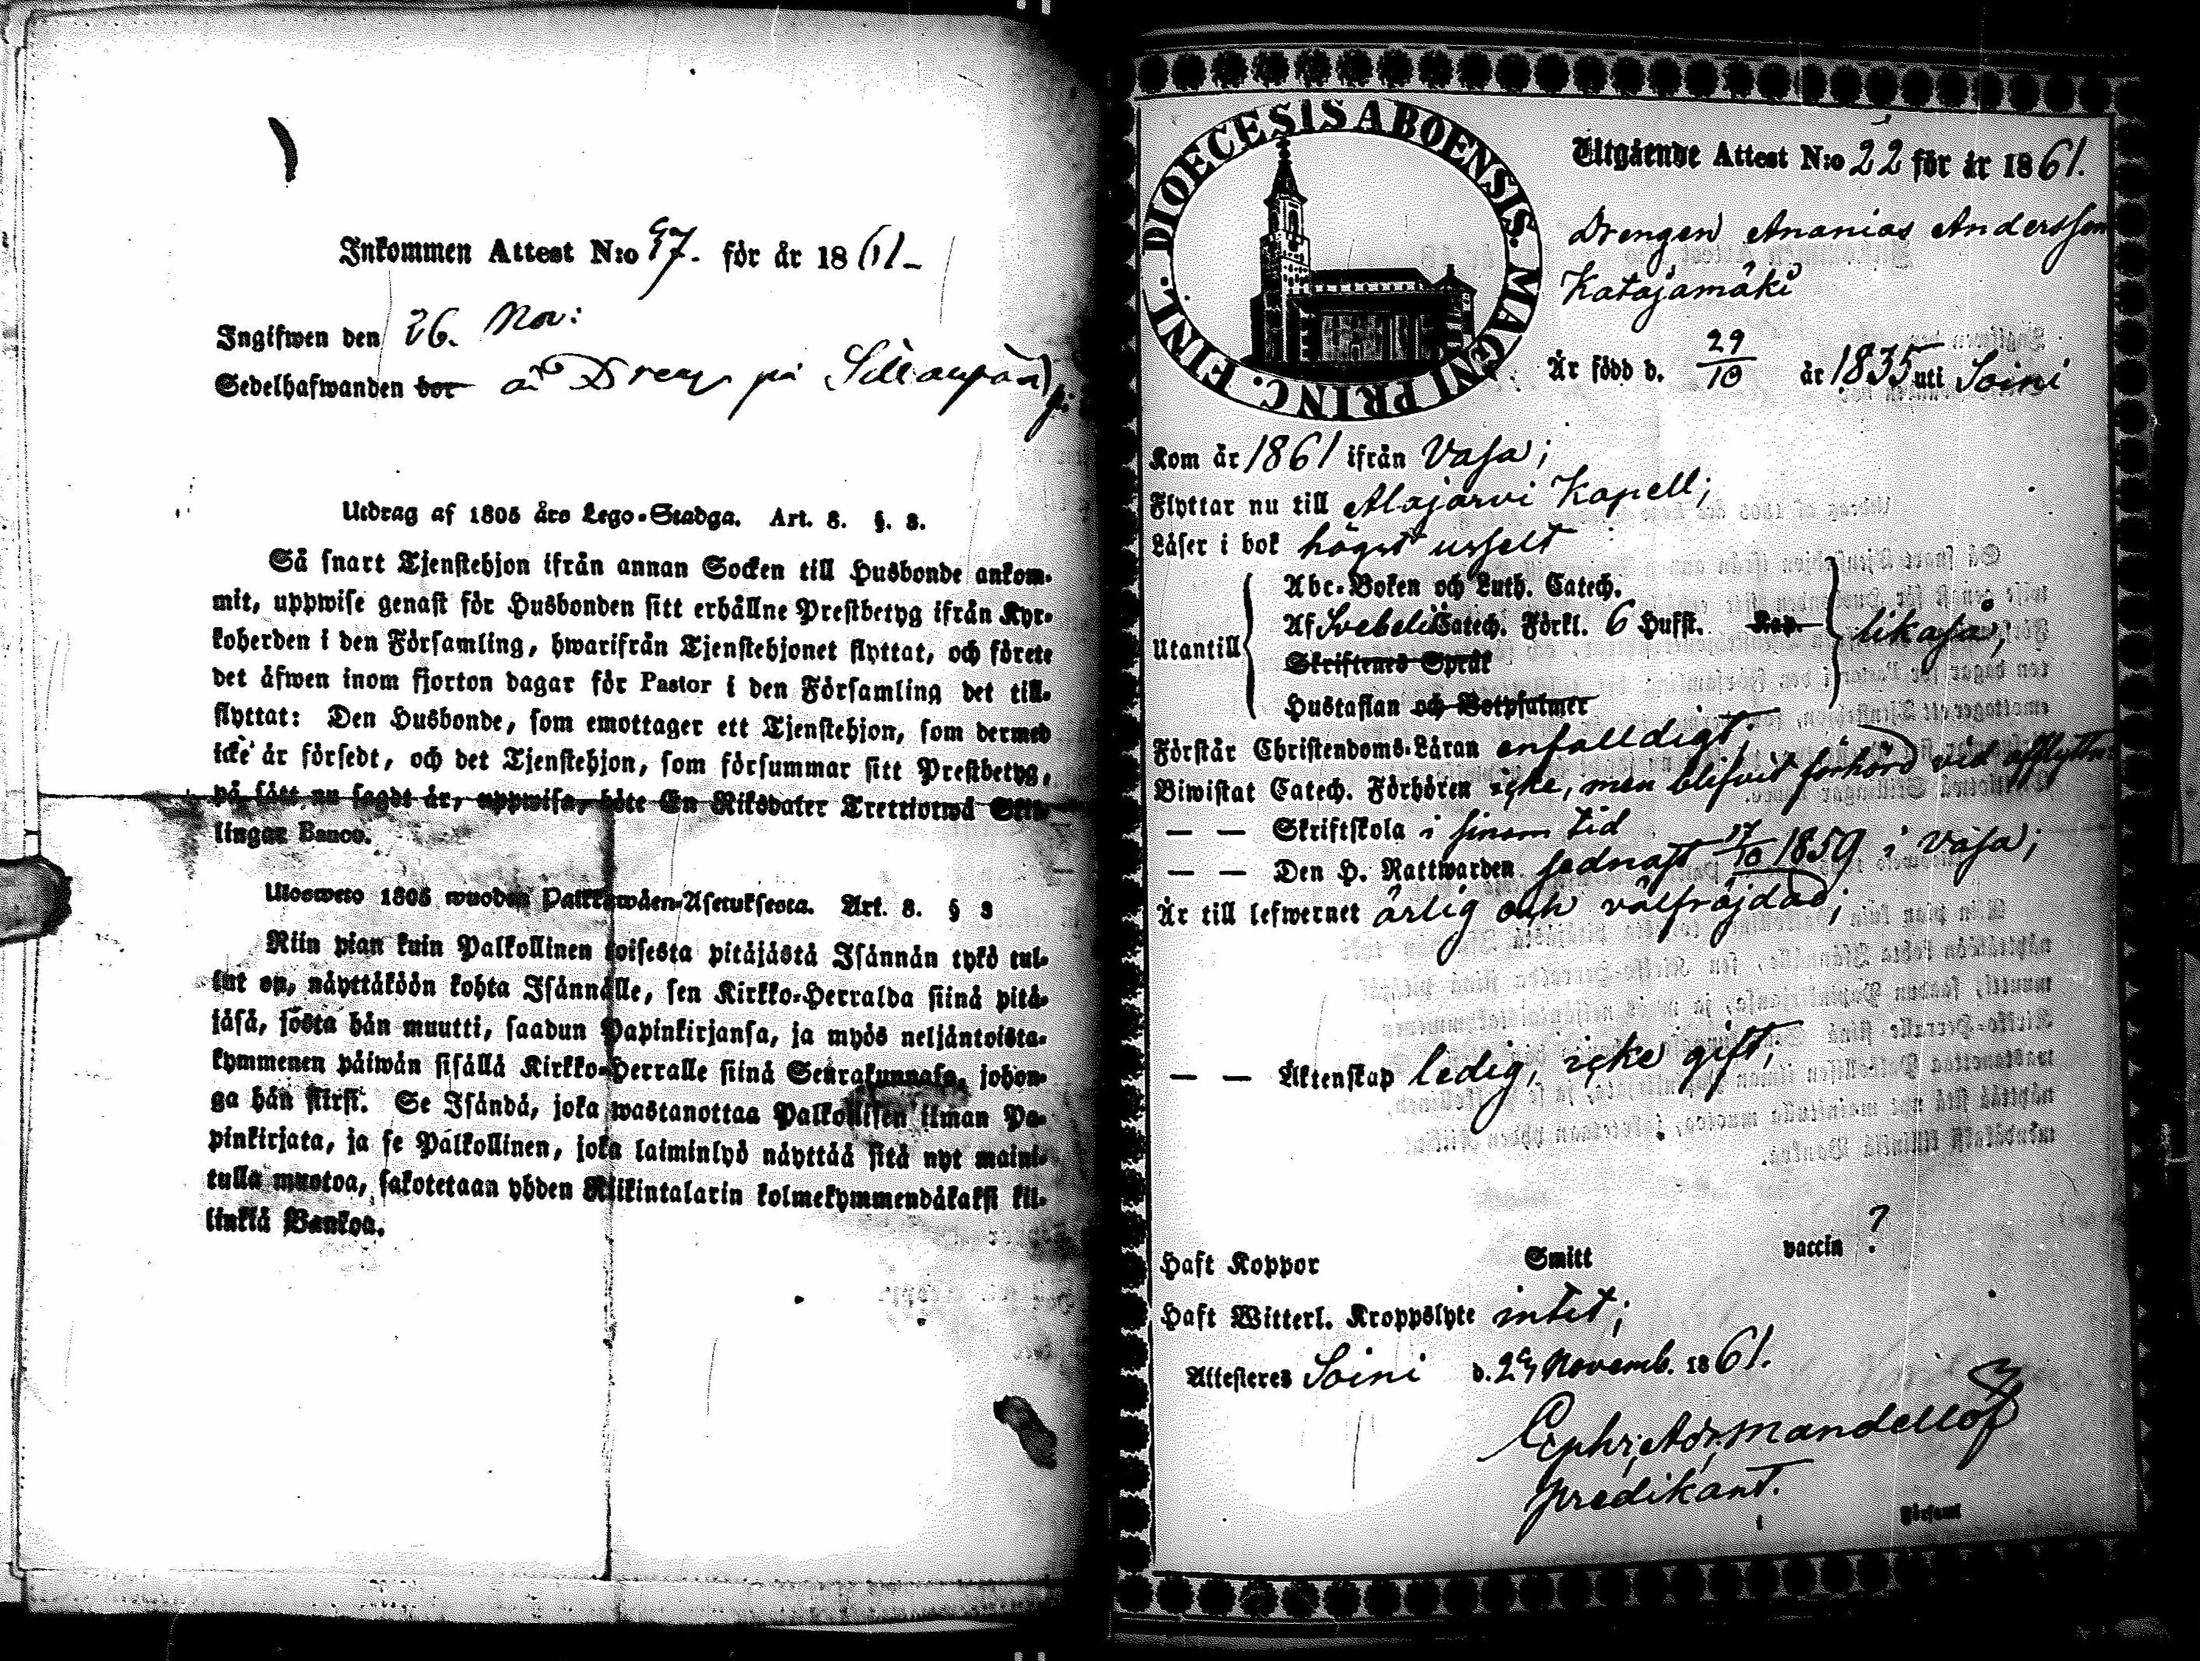 Inkommen Attest N:o 57. för år 1861-
Ingifwen den 26. Nov:
Sedelhafwanden bor är Dreng på
Utdrag af 1805 års Lego-Stadga. Art. 8. §. 3.
Så snart Tjenstehjon ifrån annan Socken till Husbonde ankom-
mit, uppwise genast för Husbonden sitt erhållne Prestbetyg ifrån Kyr-
koherden i den Församling, hwarifrån Tjenstehjonet flyttat, och förete
det äfwen inom fjorton dagar för Pastor i den Församling det till-
flyttat: Den Husbonde, som emottager ett Tjenstehjon, som dermed
icke är försedt, och det Tjenstehjon, som försummar sitt Prestbetyg,
på sätt nu sagdt är, uppwisa, böte En Riksdaler Trettiotwå Skil-
lingar Banco.
Ulosweto 1805 wuoden Palkkawäen-Asetuksesta. Art. 8. § 3
Niin pian kuin Palkollinen toisesta pitäjästä Isännän tykö tul-
lut on, näyttäköön kohta Isännälle, sen Kirkko-Herralda siinä pitä-
jäsä, josta hän muutti, saadun Papinkirjansa, ja myös neljäntoista-
kymmenen päiwän sisällä Kirkko-Herralle siinä Seurakunnasa, johon-
ga hän siirsi. Se Isändä, joka wastanottaa Palkollisen ilman Pa-
pinkirjata, ja se Palkollinen, joka laiminlyö näyttää sitä nyt maini-
tulla muotoa, sakotetaan yhden Riikintalarin kolmekymmendäkaksi kil-
linkiä Bankoa.
DIOECESIS ABOENSIS. MAGNI PRINC. FINL.
Utgående Attest N:o 22 för år 1861.
Drengen Ananias Andersson
Katajamäki
Är född d. 29/10 år 1835 uti Soini
Kom år 1861 ifrån Vasa;
Flyttar nu till Alajärvi Kapell;
Läser i bok högst usselt
Utantill
Abc-Boken och Luth. Catech.
Af Svebelii Catech. Förkl. 6 Hufst. Kap.
Skriftenes Språk
Hustaflan och Botpsalmer
likaså;
Förstår Christendoms-Läran enfalldigt.
Biwistat Catech. Förhören icke, men blifvit förhörd vid afflyttn.
— — Skriftskola i sinom tid
— — Den H. Nattwarden sednast 17/10 1859 i Vasa;
Är till lefwernet ärlig och välfräjdad;
— — Äktenskap ledig, icke gift;
Haft Koppor Smitt vaccin ?
Haft Witterl. Kroppslyte intet;
Attesteres Soini d. 24 Novemb. 1861.
Ephr. Ad. Mandellöf
predikant.
Församl